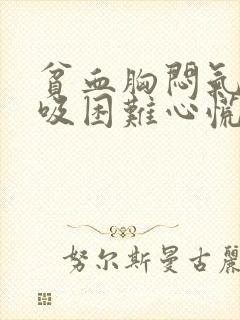 貧血胸悶氣
吸困難心慌
努尔斯曼古麗